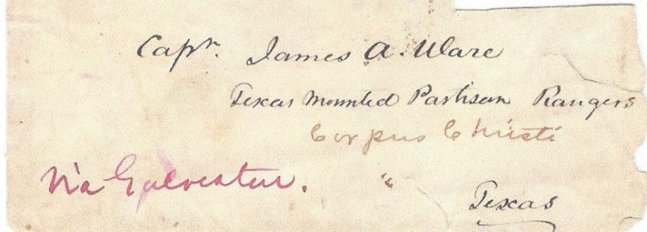 Capn. James A. Ware
Texas Mounted Partisan Rangers
Corpus Christi
Via Galveston. "
Texas